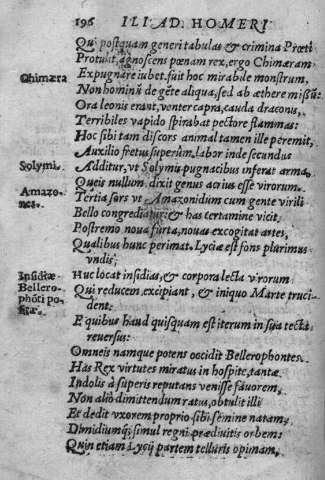 196 ILIAD. HOMERI
Qui postquam generi tabulas & crimina Prœti
Protulit, agnoscens pœnam rex, ergo Chimæram
Chimæra
Expugnare iubet. fuit hoc mirabile monstrum,
Non hominũ de gẽte aliqua, sed ab æthere missũ:
Ora leonis erant, venter capra, cauda draconis,
Terribiles vapido spirabat pectore flammas:
Hoc sibi tam discors animal tamen ille peremit,
Auxilio fretus superûm. labor inde secundus
Solymi.
Additur, vt Solymis pugnacibus inferat arma,
Queis nullum dixit genus acrius esse virorum.
Amazones.
Tertia sors vt Amazonidum cum gente virili
Bello congrediatur: & has certamine vicit,
Postremo noua furta, nouas excogitat artes,
Qualibus hunc perimat. Lyciæ est fons plurimus
vndis;
Insidiæ Bellerophõti positæ.
Huc locat insidias, & corpora lecta virorum
Qui reducem excipiant, & iniquo Marte trucident.
E quibus haud quisquam est iterum in sua tecta
reuersus:
Omneis namque potens occidit Bellerophontes.
Has Rex virtutes miratus in hospite, tantæ
Indolis à superis reputans venisse fauorem,
Non aliò dimittendum ratus, obtulit illi
Et dedit vxorem proprio sibi semine natam,
Dimidiumq; simul regni prædiuitis orbem:
Quin etiam Lycij partem telluris opimam,